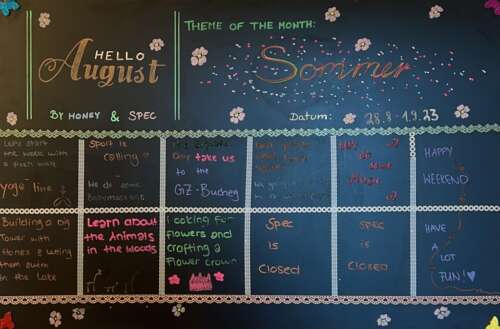 HELLO
August
BY HONEY & SPEC
THEME OF THE MONTH:
Sommer
Datum: 28.8 - 1.9.23
Let's start
the week with
a fresh walk
yoga time
Sport is
calling
We do some
Day take us
to the
GZ-Bucheg
do some
HAPPY
WEEKEND
Building a big
Tower with
Stones & using
them outm
in the Lake
Learn about
the Animals
in the Woods
Looking for
flowers and
crafting a
Flower crown
SPEC
IS
CLOSED
SPEC
IS
CLOSED
HAVE
A
LOT
FUN!